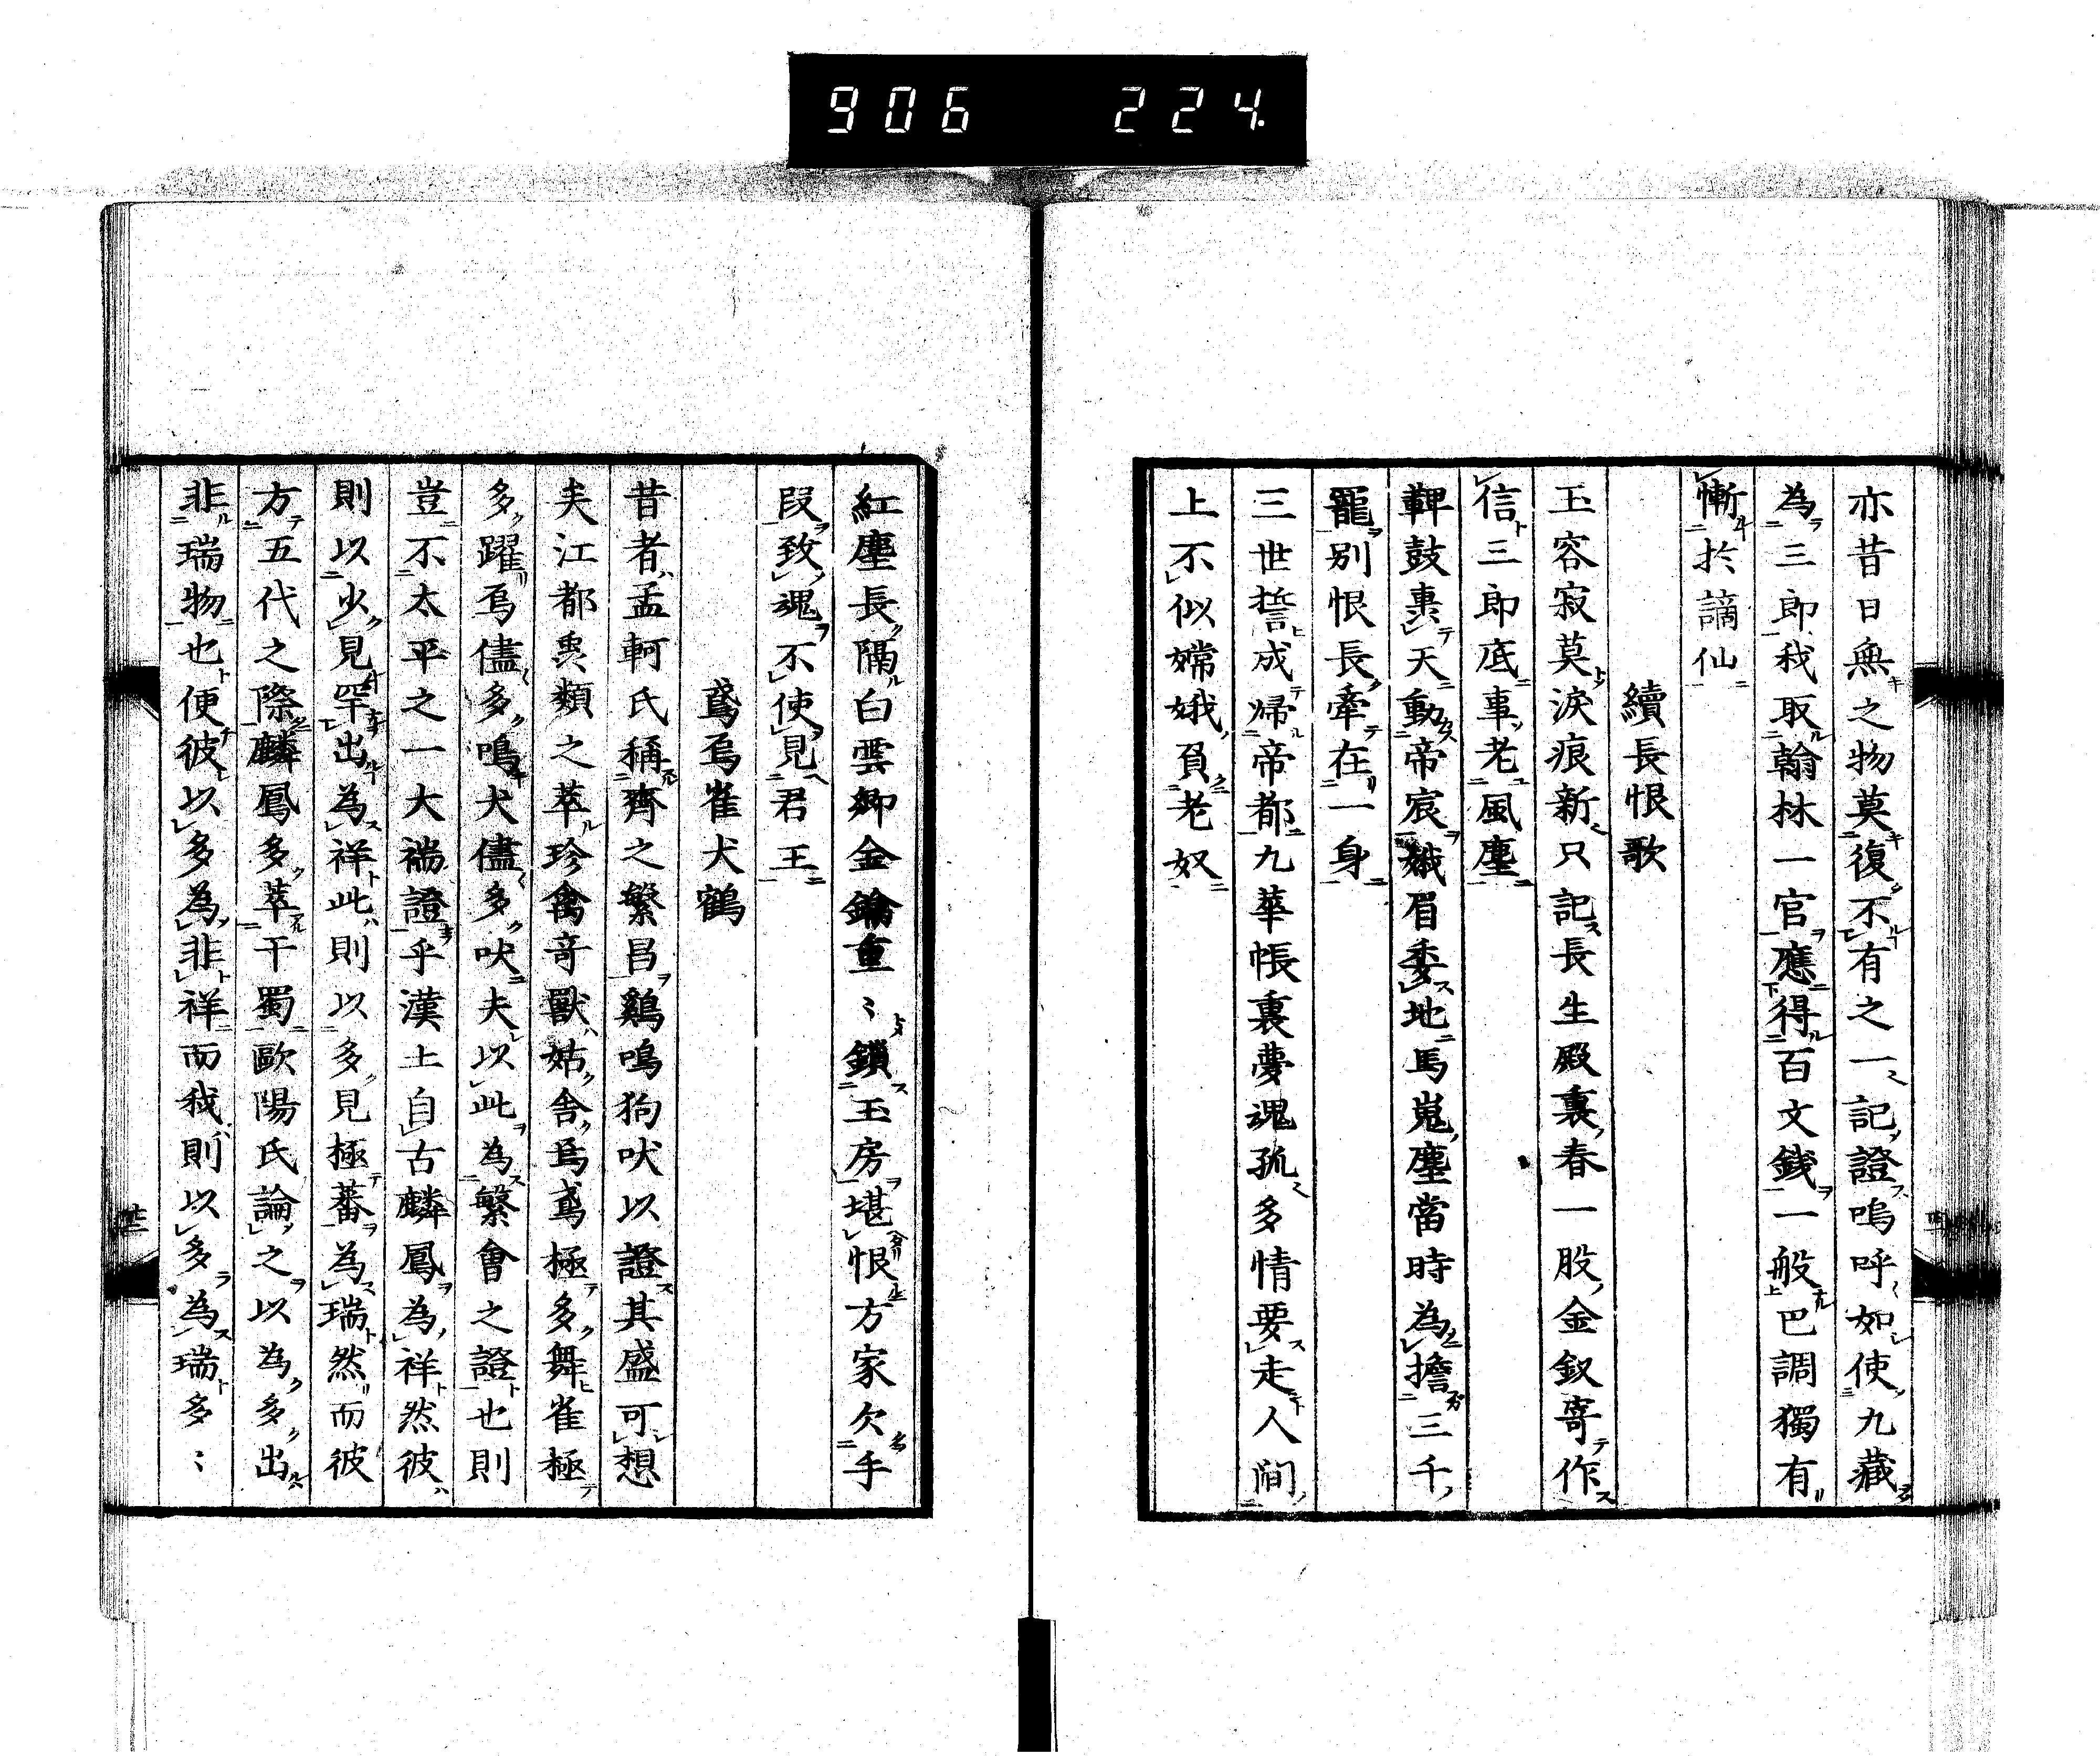 906 224.
亦昔日無之物莫復不有之一記證嗚呼如使九藏
為三郎我取翰林一官應得百文錢一般巴調獨有
慚於謫仙
續長恨歌
玉容寂莫淚痕新只記長生殿裏春一股金釵寄作
信三郎底事老風塵
鞞鼓裏天動帝宸娥眉委地馬嵬塵當時為擔三千
寵別恨長牽在一身
三世誓成歸帝都九華帳裏夢魂孤多情要走人間
上不似嫦娥負老奴
紅塵長隔白雲鄉金鑰重〻鎖玉房堪恨方家欠手
段致魂不使見君王
鳶烏雀犬鶴
昔者孟軻氏稱齊之繁昌鷄鳴狗吠以證其盛可想
夫江都異類之萃珍禽竒獸姑舎烏鳶極多舞雀極
多躍烏儘多鳴犬儘多吠夫以此為繁會之證也則
豈不太平之一大瑞證乎漢土自古麟鳳為祥然彼
則以少見罕出為祥此則以多見極蕃為瑞然而彼
方五代之際麟鳳多萃于蜀歐陽氏論之以為多出
非瑞物也便彼以多為非祥而我則以多為瑞多〻